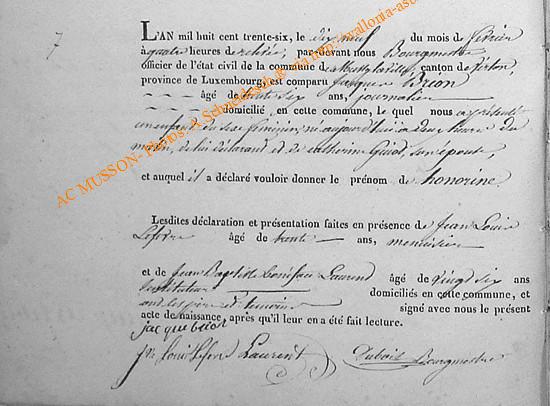 7
L'AN mil huit cent trente-six, le dix neuf du mois de février
à quatre heures de relevée, par-devant nous Bourgmestre
officier de l'état civil de la commune de Mussy la ville, canton de Virton,
province de Luxembourg, est comparu Jacques Brion
âgé de trente six ans, journalier
domicilié en cette commune, le quel nous a présenté
un enfant du sexe féminin né aujourd'hui à deux heures du
matin, de lui déclarant et de catherine Guiot, son épouse,
et auquel il a déclaré vouloir donner le prénom de honorine
Lesdites déclaration et présentation faites en présence de Jean Louis
Lefevre âgé de trente ans, menuisier
et de Jean Baptiste Laurent âgé de vingt six ans
instituteur domiciliés en cette commune, et
ont les père et témoins signé avec nous le présent
acte de naissance, après qu'il leur en a été fait lecture.
jacque brion
jn Louis Lefevre Laurent Dubois Bourgmestre
AC MUSSON- Photos: A Schneidesch @ via http://wallonia-aso